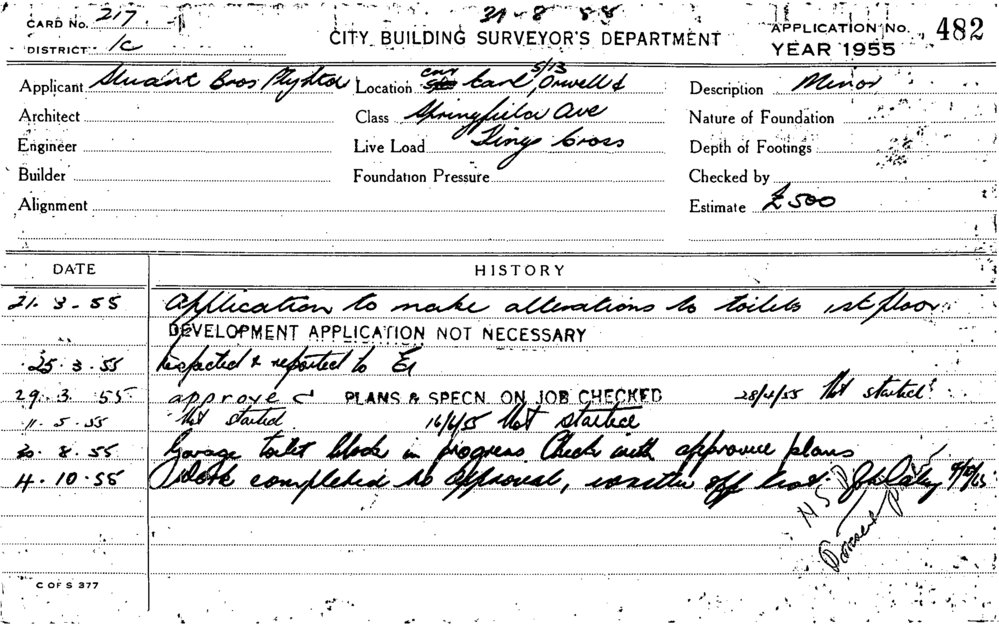 CARD No. 217
31-8-55
DISTRICT 1c
CITY BUILDING SURVEYOR'S DEPARTMENT
APPLICATION No. 482
YEAR 1955
Applicant Stuart Bros Pty Ltd
Location cnr Earl, 5/13 Orwell &
Description Minor
Architect
Class Springfield Ave
Nature of Foundation
Engineer
Live Load Kings Cross
Depth of Footings
Builder
Foundation Pressure
Checked by
Alignment
Estimate £500
DATE HISTORY
21. 3. 55 Application to make alterations to toilets 1st floor
DEVELOPMENT APPLICATION NOT NECESSARY
25. 3. 55 Inspected & reported to
29. 3. 55 approved PLANS & SPECN. ON JOB CHECKED 28/4/55 Not started
11. 5. 55 Not started 16/6/55 Not started
8. 55 Garage toilet block in progress Check with approved plans
4. 10. 55 Work completed to approval,
C OF S 377